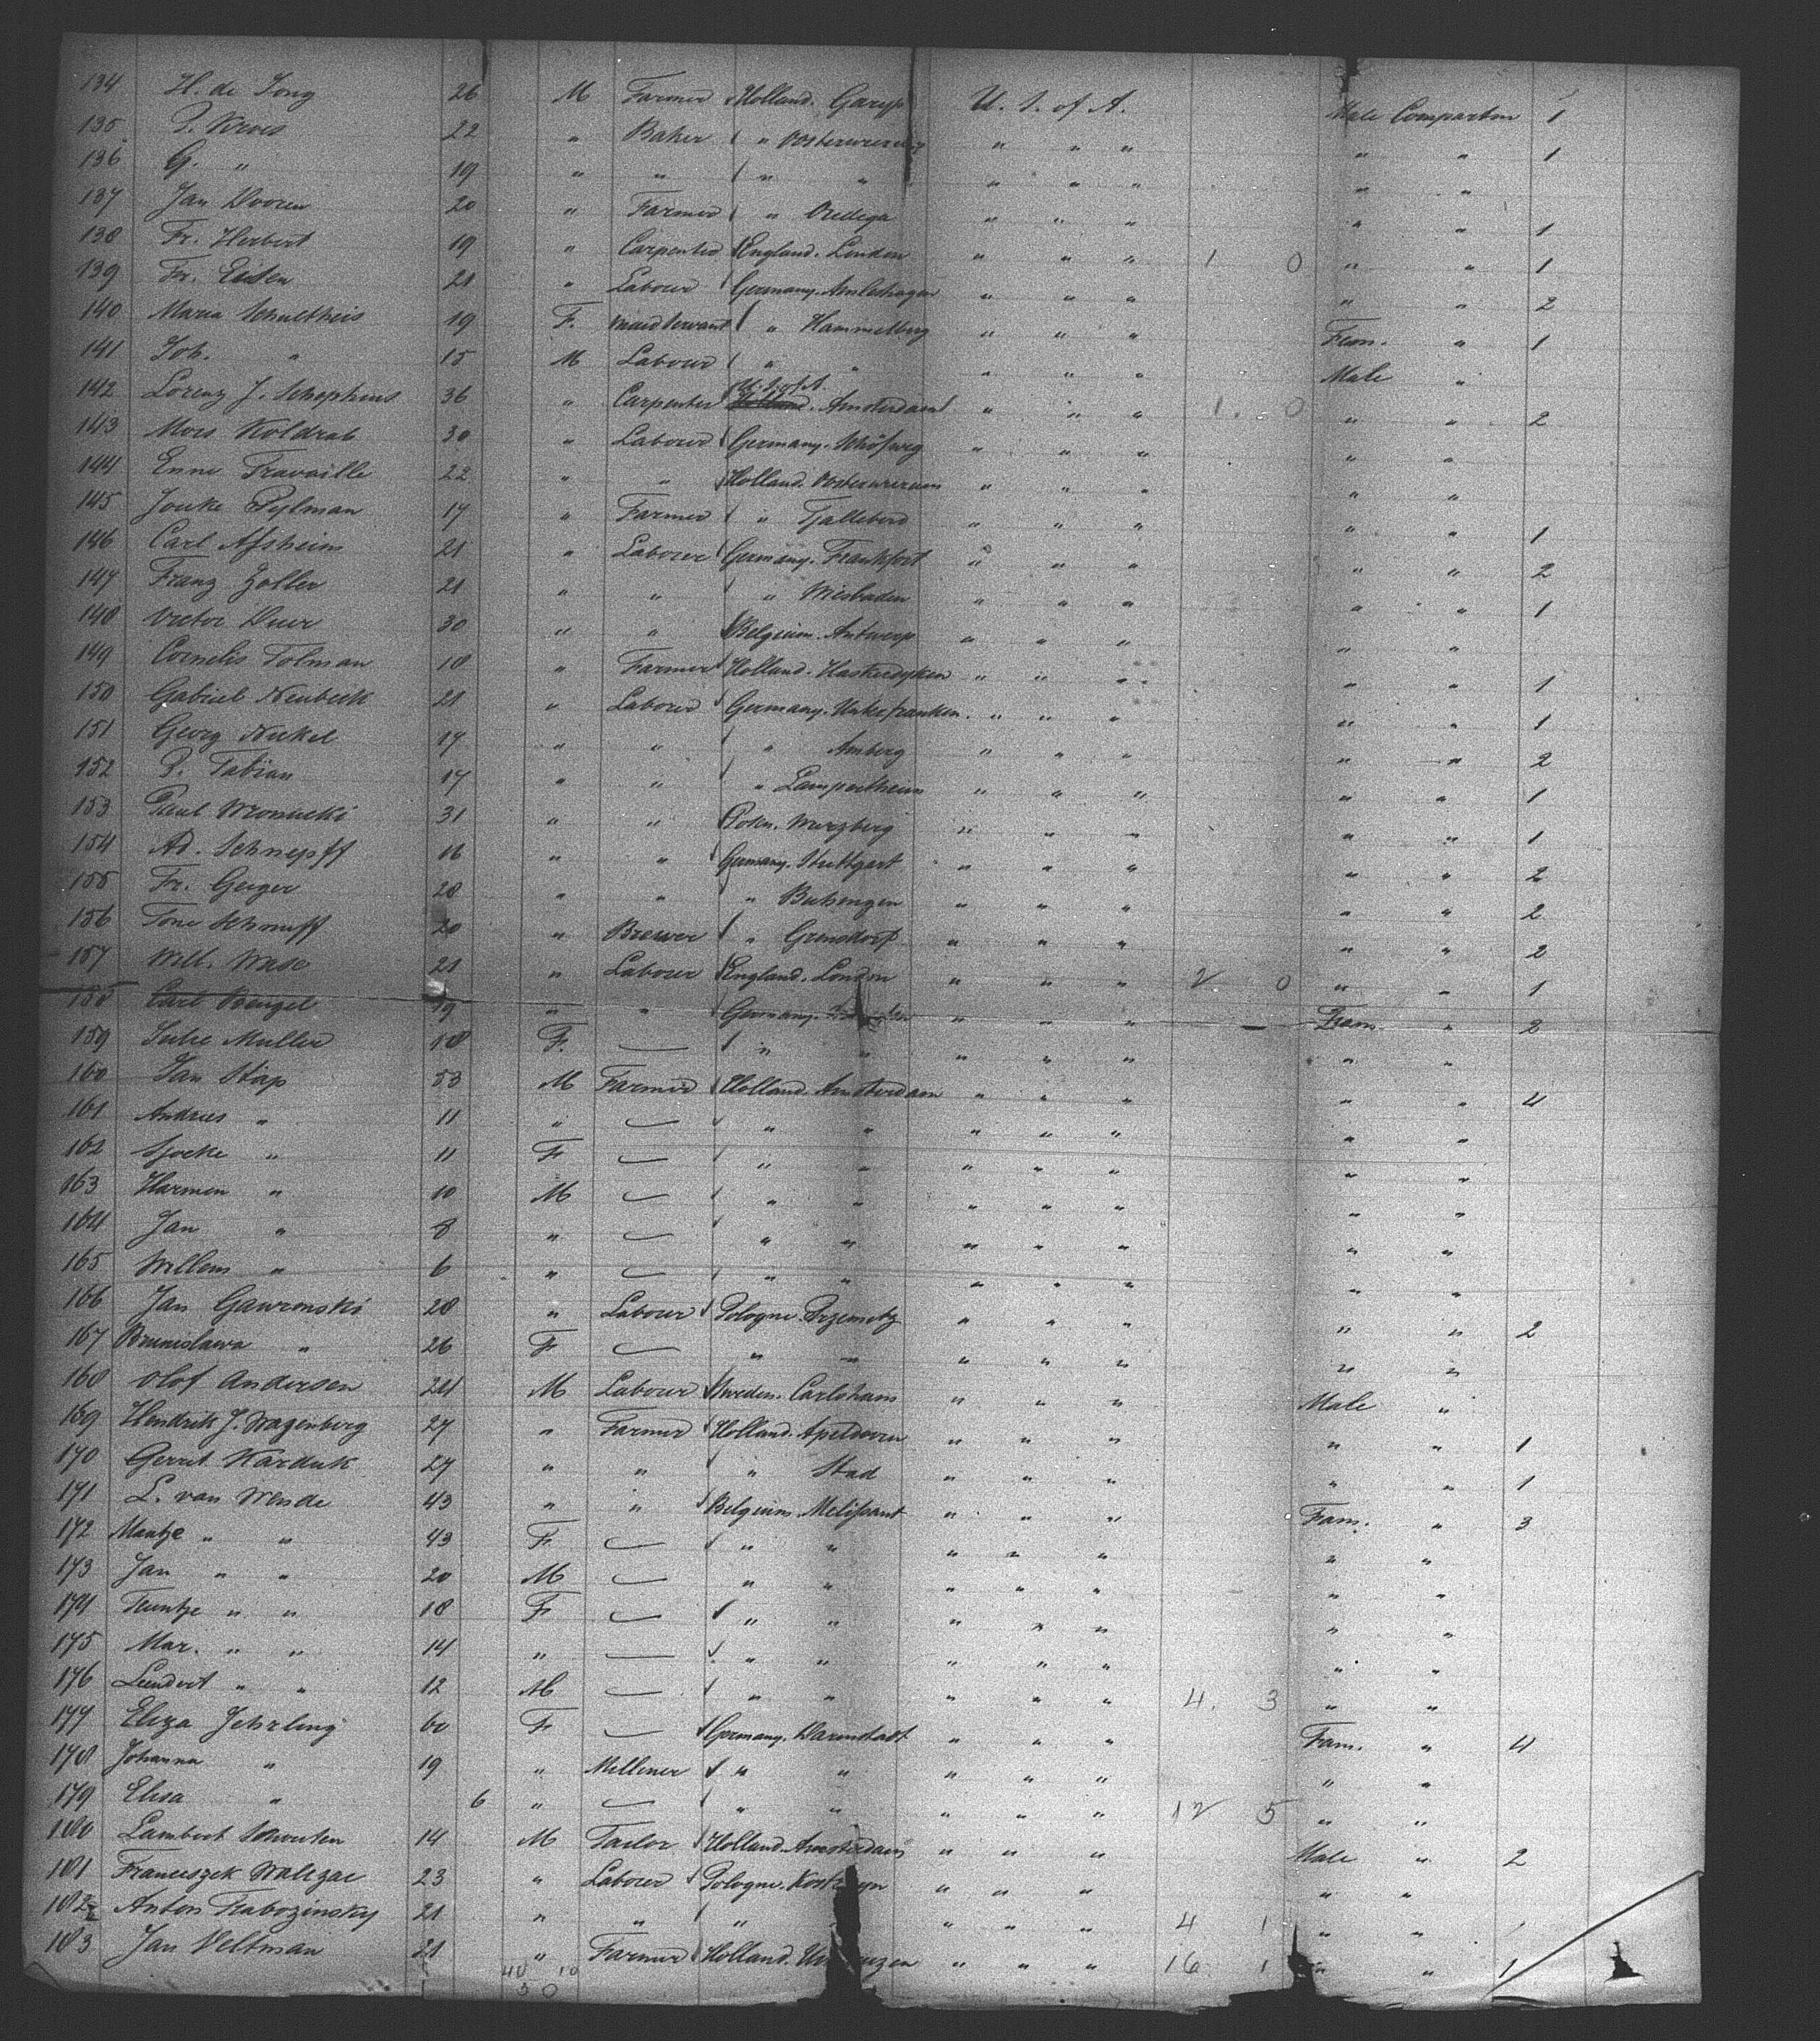 134 H. de Jong 26 M Farmer Holland. Garyp U. S. of A. Male Compartm 1
135 P. Kroes 22 " Baker " " " " " " 1
136 G. " 19 " " " " " " " " "
137 Jan Dooren 20 " Farmer " Oudega " " " " " 1
138 Fr. Herbert 19 " Carpenter England. London " " " 1 0 " " 1
139 Fr. Eisten 21 " Labourer Germany. " " " " " 2
140 Maria Schultheis 19 F. Maid Servant " Hammelburg " " " Fem. " 1
141 Joh. " 15 M Labourer " " " " " Male "
142 Lorenz J. 36 " Carpenter U. S. of A. Holland. Amsterdam " " " 1. 0 " " 2
143 Koldrab 30 " Labourer Germany. " " " " "
144 Enne Travaille 22 " " Holland. " " " " "
145 Jouke Pylman 17 " Farmer " Tjalleberd " " " " " 1
146 Carl Afsheim 21 " Labourer Germany. Frankfort " " " " " 2
147 Franz Zoller 21 " " " Wiesbaden " " " " " 1
148 Victor Duur 30 " " Belgium. Antwerp " " " " "
149 Cornelis Tolman 18 " Farmer Holland. Haskerdyken " " " " " 1
150 Gabriel Neubeck 21 " Labourer Germany. Unterfranken. " " " " " 1
151 Georg Nickel 17 " " " Amberg " " " " " 2
152 P. Fabian 17 " " " Lampertheim " " " " " 1
153 Paul Wronucki 31 " " " " " " " 1
154 Ad. Schnepff 16 " " Germany. Stuttgart " " " " " 2
155 Fr. Geiger 28 " " " " " " " " 2
156 Tone 20 " Brewer " Grensdorf " " " " " 2
157 Will. Wase 21 " Labourer England. London " " " 2 0 " " 1
158 Carl Bengel 19 " " Germany. " " " Fam " 2
159 Julie Muller 18 F. — " " " " " " "
160 Jan Stap 53 M Farmer Holland. Amsterdam " " " " " 4
161 Andries " 11 " — " " " " " " "
162 Sjoeke " 11 F — " " " " " " "
163 Harmen " 10 M — " " " " " " "
164 Jan " 8 " — " " " " " " "
165 Willem " 6 " — " " " " " " "
166 Jan Gawronski 28 " Labourer Pologne. " " " " " 2
167 Bruneslawa " 26 F — " " " " " " "
168 Olof Andersen 24 M Labourer Sweden. Carlsham " " " Male "
169 Hendrik J. Wagenberg 27 " Farmer Holland. Apeldoorn " " " " " 1
170 Gerrit Karduk 27 " " " Stad " " " " " 1
171 L. van Wende 43 " " Belgium. Melissant " " " Fam. " 3
172 Maatje " " 43 F — " " " " " " "
173 Jan " " 20 M — " " " " " " "
174 Teuntje " " 18 F — " " " " " " "
175 Mar. " " 14 " — " " " " " " "
176 Leendert " " 12 M — " " " " " 4. 3 " "
177 Eliza Jehrling 60 F — Germany. Darmstadt " " " Fam. " 4
178 Johanna " 19 " Milliner " " " " " " "
179 Elisa " 6 " — " " " " " 12 5 " "
180 Lambert Schouten 14 M Tailor Holland. Amsterdam " " " Male " 2
181 Franciszek Walczac 23 " Labourer Pologne. " " " " "
182 Anton Trabozinsky 21 " " " " " " 4 1 " "
183 Jan Veltman 21 " Farmer Holland. " " " 16. 1 " " 1
40 10
30